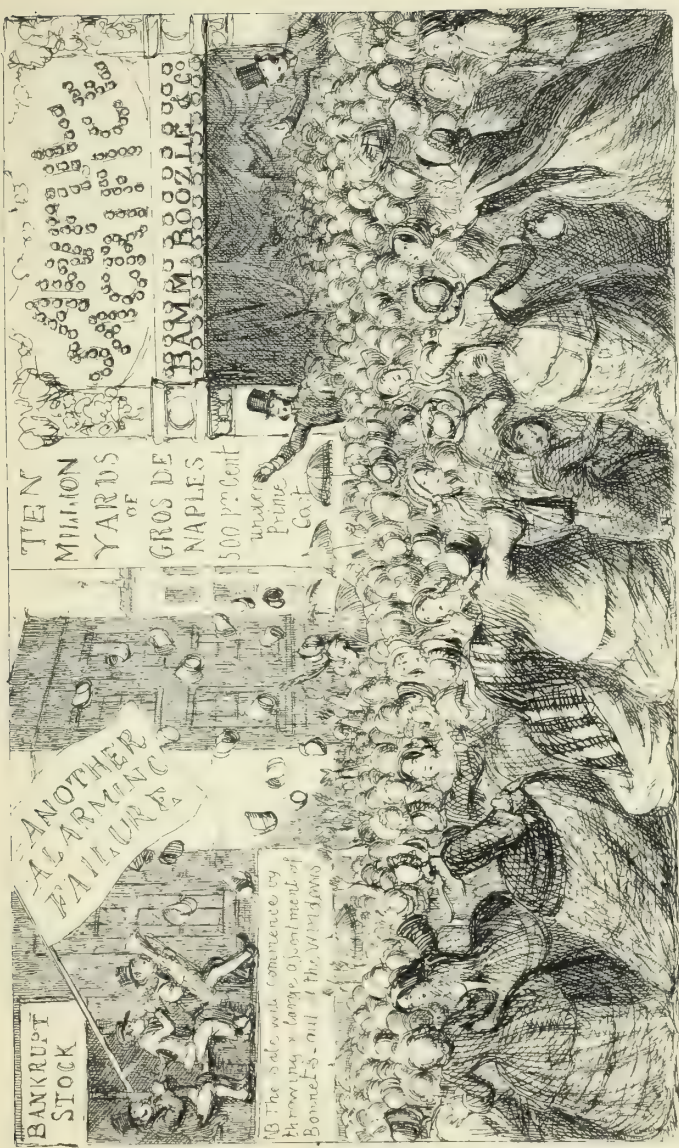 BANKRUPT
STOCK
ANOTHER
ALARMING
FAILURE
B The sale will commence by
throwing a large assortment of
Bonnets - out of the Windows
TEN
MILLION
YARDS
OF
GROS DE
NAPLES
500 pr Cent
under
Prime
Cost
AWFUL
SACRIFICE
BAMM BOOZLE & Co